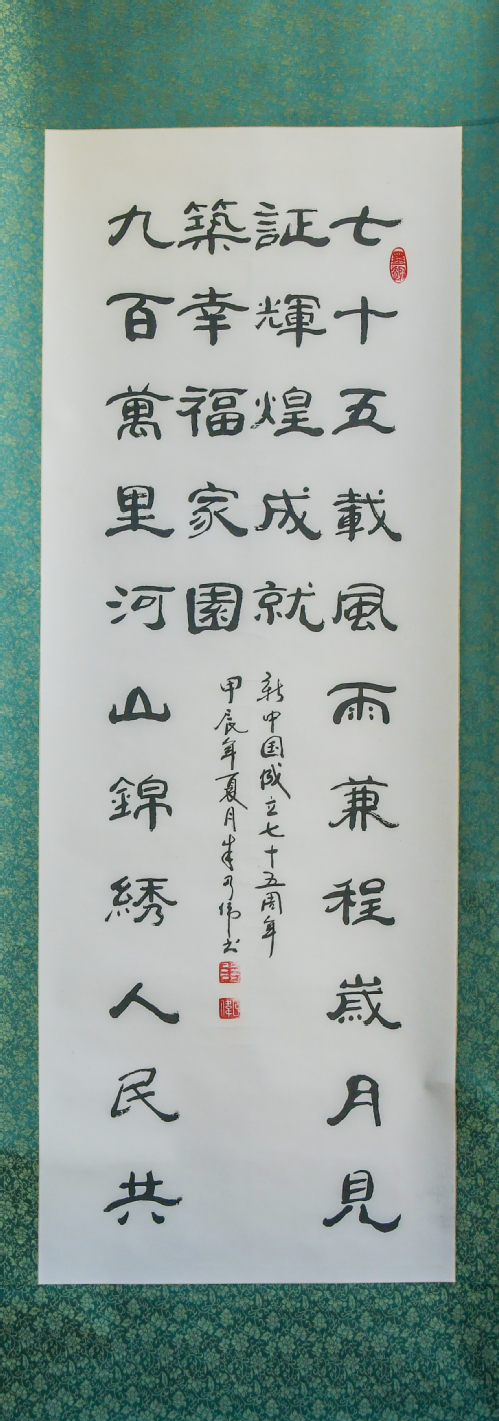 七十五載風雨兼程歲月見
証輝煌成就
九百萬里河山錦綉人民共
築幸福家園
新中国成立七十五周年
甲辰年夏月朱乃偉书